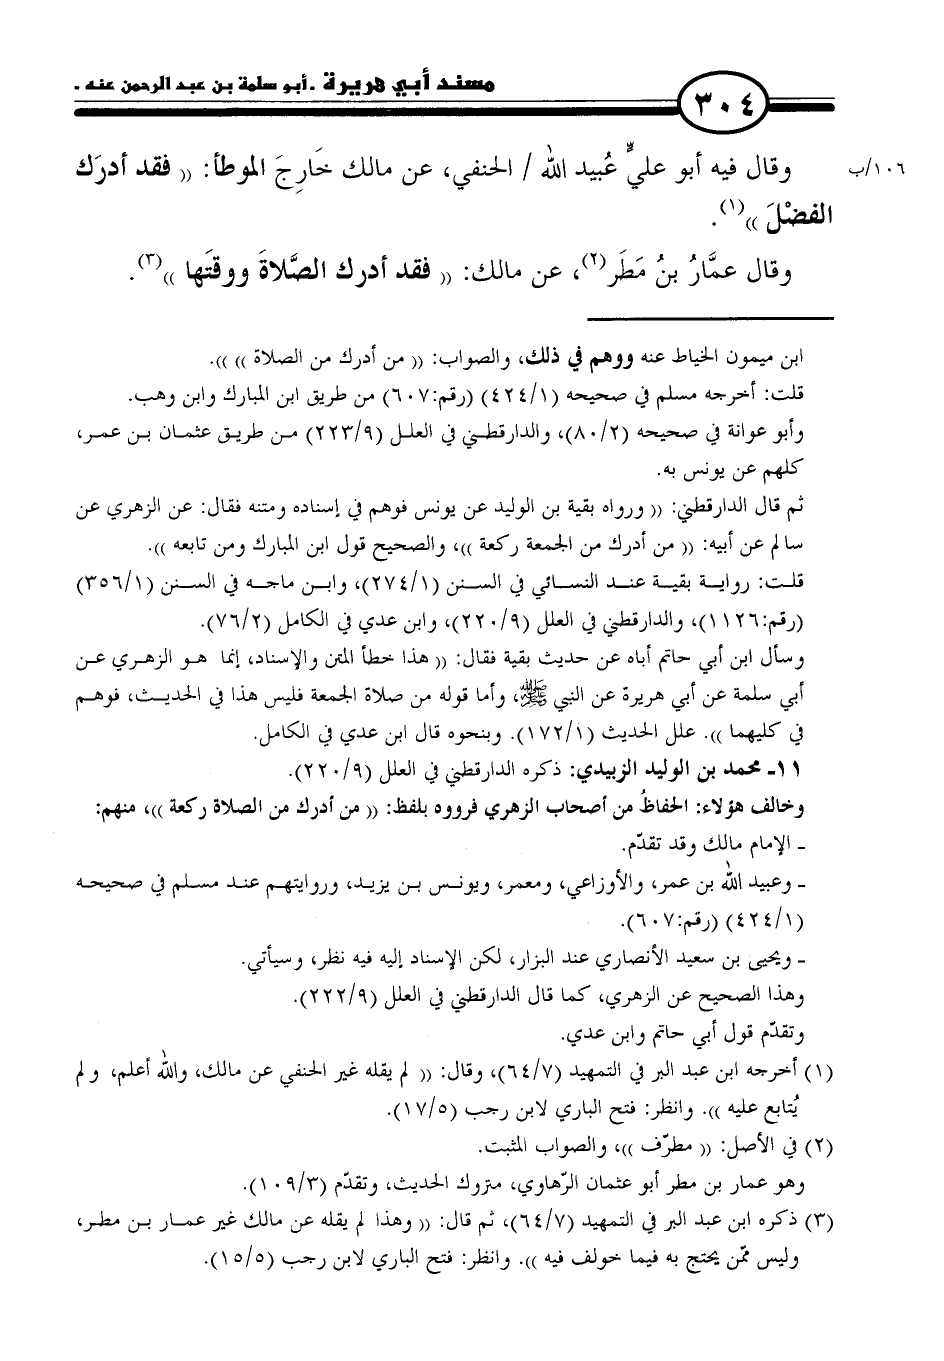 مسند أبي هريرة . أبو سلمة بن عبد الرحمن عنه .
٣٠٤
١٠٦/ب
وقال فيه أبو عليٍّ عُبيد الله / الحنفي، عن مالك خَارِجَ الموطأ: (( فقد أدرَك
الفضْلَ ))(١).
وقال عمَّارُ بنُ مَطَر(٢)، عن مالك: (( فقد أدرك الصَّلاةَ ووقتَها ))(٣).
ابن ميمون الخياط عنه ووهم في ذلك، والصواب: (( من أدرك من الصلاة )) )).
قلت: أخرجه مسلم في صحيحه (٤٢٤/١) (رقم:٦٠٧) من طريق ابن المبارك وابن وهب.
وأبو عوانة في صحيحه (٨٠/٢)، والدارقطني في العلل (٢٢٣/٩) من طريق عثمان بن عمر،
كلهم عن يونس به.
ثم قال الدارقطني: (( ورواه بقية بن الوليد عن يونس فوهم في إسناده ومتنه فقال: عن الزهري عن
سالم عن أبيه: (( من أدرك من الجمعة ركعة ))، والصحيح قول ابن المبارك ومن تابعه )).
قلت: رواية بقية عند النسائي في السنن (٢٧٤/١)، وابن ماجه في السنن (٣٥٦/١)
(رقم:١١٢٦)، والدارقطني في العلل (٢٢٠/٩)، وابن عدي في الكامل (٧٦/٢).
وسأل ابن أبي حاتم أباه عن حديث بقية فقال: (( هذا خطأ المتن والإسناد، إنما هو الزهري عن
أبي سلمة عن أبي هريرة عن النبي ﷺ، وأما قوله من صلاة الجمعة فليس هذا في الحديث، فوهم
في كليهما )). علل الحديث (١٧٢/١). وبنحوه قال ابن عدي في الكامل.
١١- محمد بن الوليد الزبيدي: ذكره الدارقطني في العلل (٢٢٠/٩).
وخالف هؤلاء: الحفاظُ من أصحاب الزهري فرووه بلفظ: (( من أدرك من الصلاة ركعة ))، منهم:
- الإمام مالك وقد تقدّم.
- وعبيد الله بن عمر، والأوزاعي، ومعمر، ويونس بن يزيد، وروايتهم عند مسلم في صحيحه
(٤٢٤/١) (رقم:٦٠٧).
- ويحيى بن سعيد الأنصاري عند البزار، لكن الإسناد إليه فيه نظر، وسيأتي.
وهذا الصحيح عن الزهري، كما قال الدارقطني في العلل (٢٢٢/٩).
وتقدّم قول أبي حاتم وابن عدي.
(١) أخرجه ابن عبد البر في التمهيد (٦٤/٧)، وقال: (( لم يقله غير الحنفي عن مالك، والله أعلم، ولم
يُتابع عليه )). وانظر: فتح الباري لابن رجب (١٧/٥).
(٢) في الأصل: (( مطرّف ))، والصواب المثبت.
وهو عمار بن مطر أبو عثمان الرّهاوي، متروك الحديث، وتقدّم (١٠٩/٣).
(٣) ذكره ابن عبد البر في التمهيد (٦٤/٧)، ثم قال: (( وهذا لم يقله عن مالك غير عمار بن مطر،
وليس ممّن يحتج به فيما خولف فيه )). وانظر: فتح الباري لابن رجب (١٥/٥).